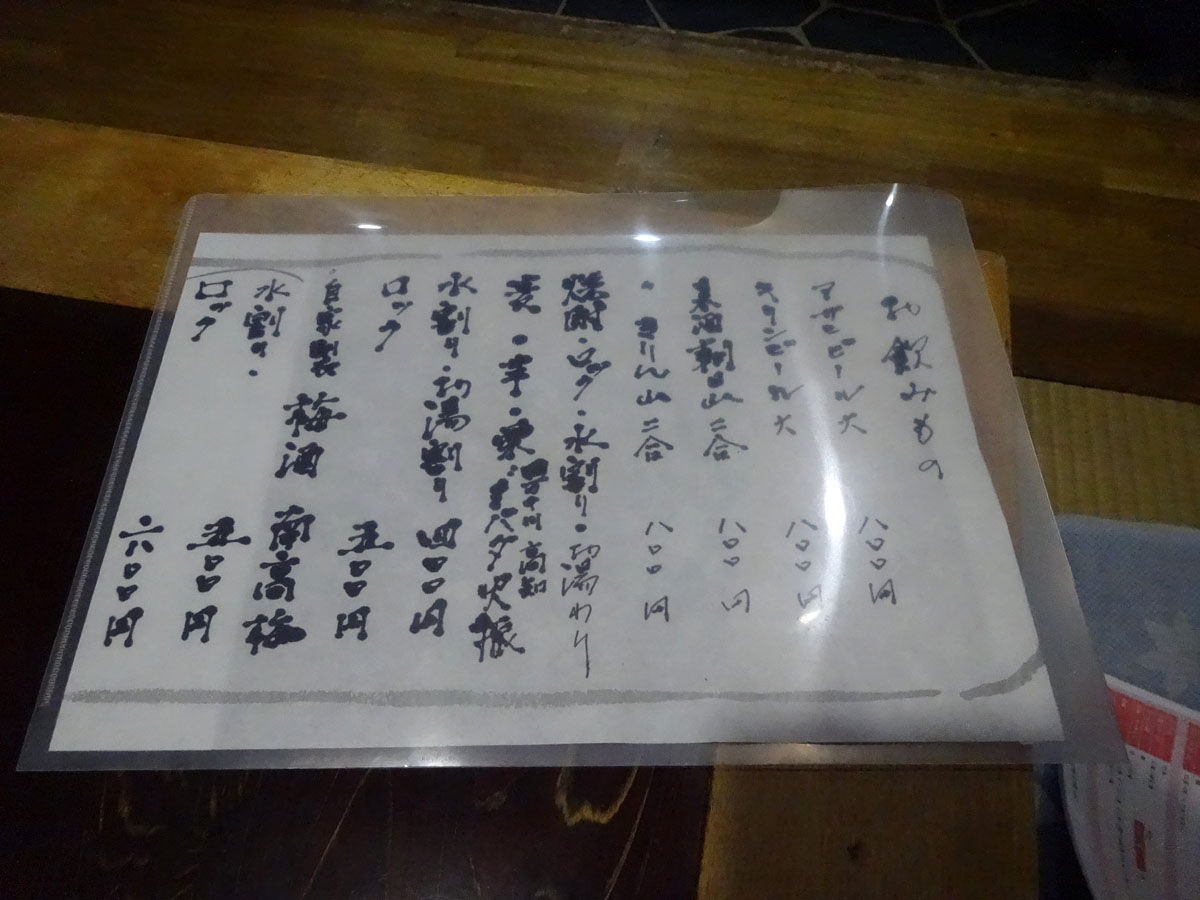 お飲みもの
アサヒビール大 八〇〇円
キリンビール大 八〇〇円
朝日山二合 八〇〇円
・ 山二合 八〇〇円
焼酎・ロック・水割り・お湯わり
麦・芋・栗 四万十川 高知 ダバダ火振
水割り・お湯割り 四〇〇円
ロック 五〇〇円
自家製 梅酒 南高梅
水割り・ 五〇〇円
ロック 六〇〇円